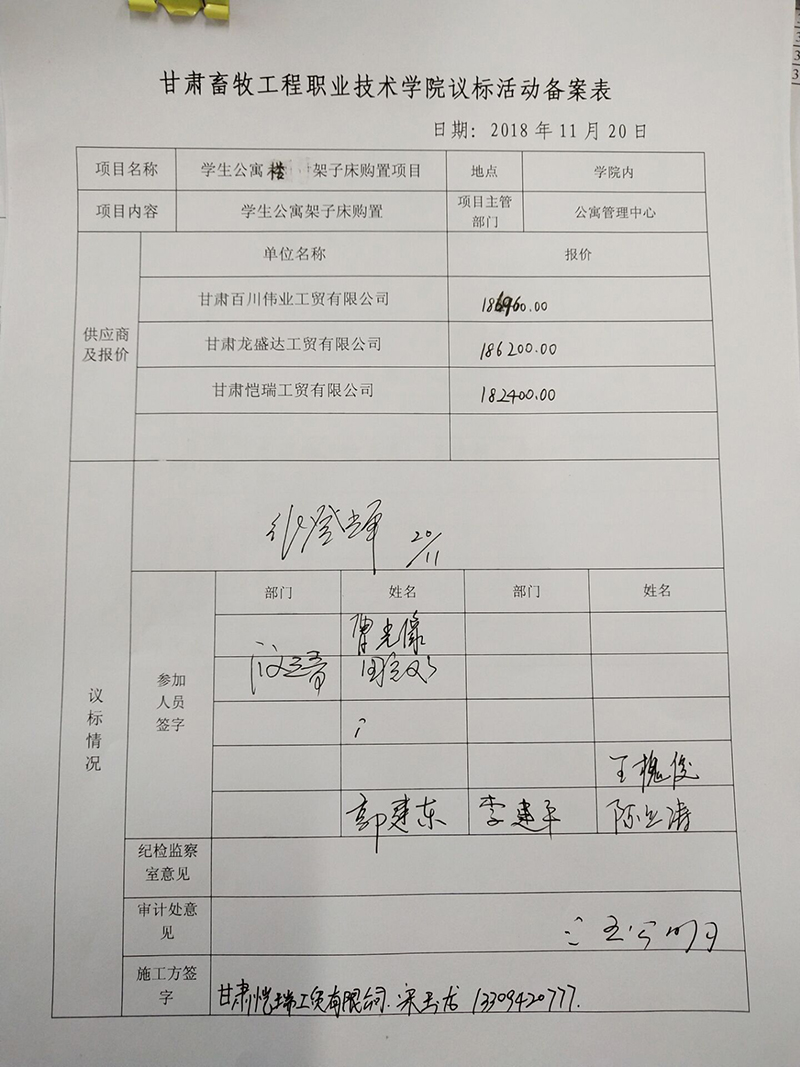 甘肃畜牧工程职业技术学院议标活动备案表
日期: 2018年11月20日
项目名称 学生公寓楼 架子床购置项目 地点 学院内
项目内容 学生公寓架子床购置 项目主管部门 公寓管理中心
供应商及报价 单位名称 报价
甘肃百川伟业工贸有限公司
甘肃龙盛达工贸有限公司 186200.00
甘肃恺瑞工贸有限公司 182400.00
20/11
议标情况
参加人员签字 部门 姓名 部门 姓名
王槐俊
郭建东 李建平
纪检监察室意见
审计处意见
施工方签字 甘肃恺瑞工贸有限公司. 13309420777.